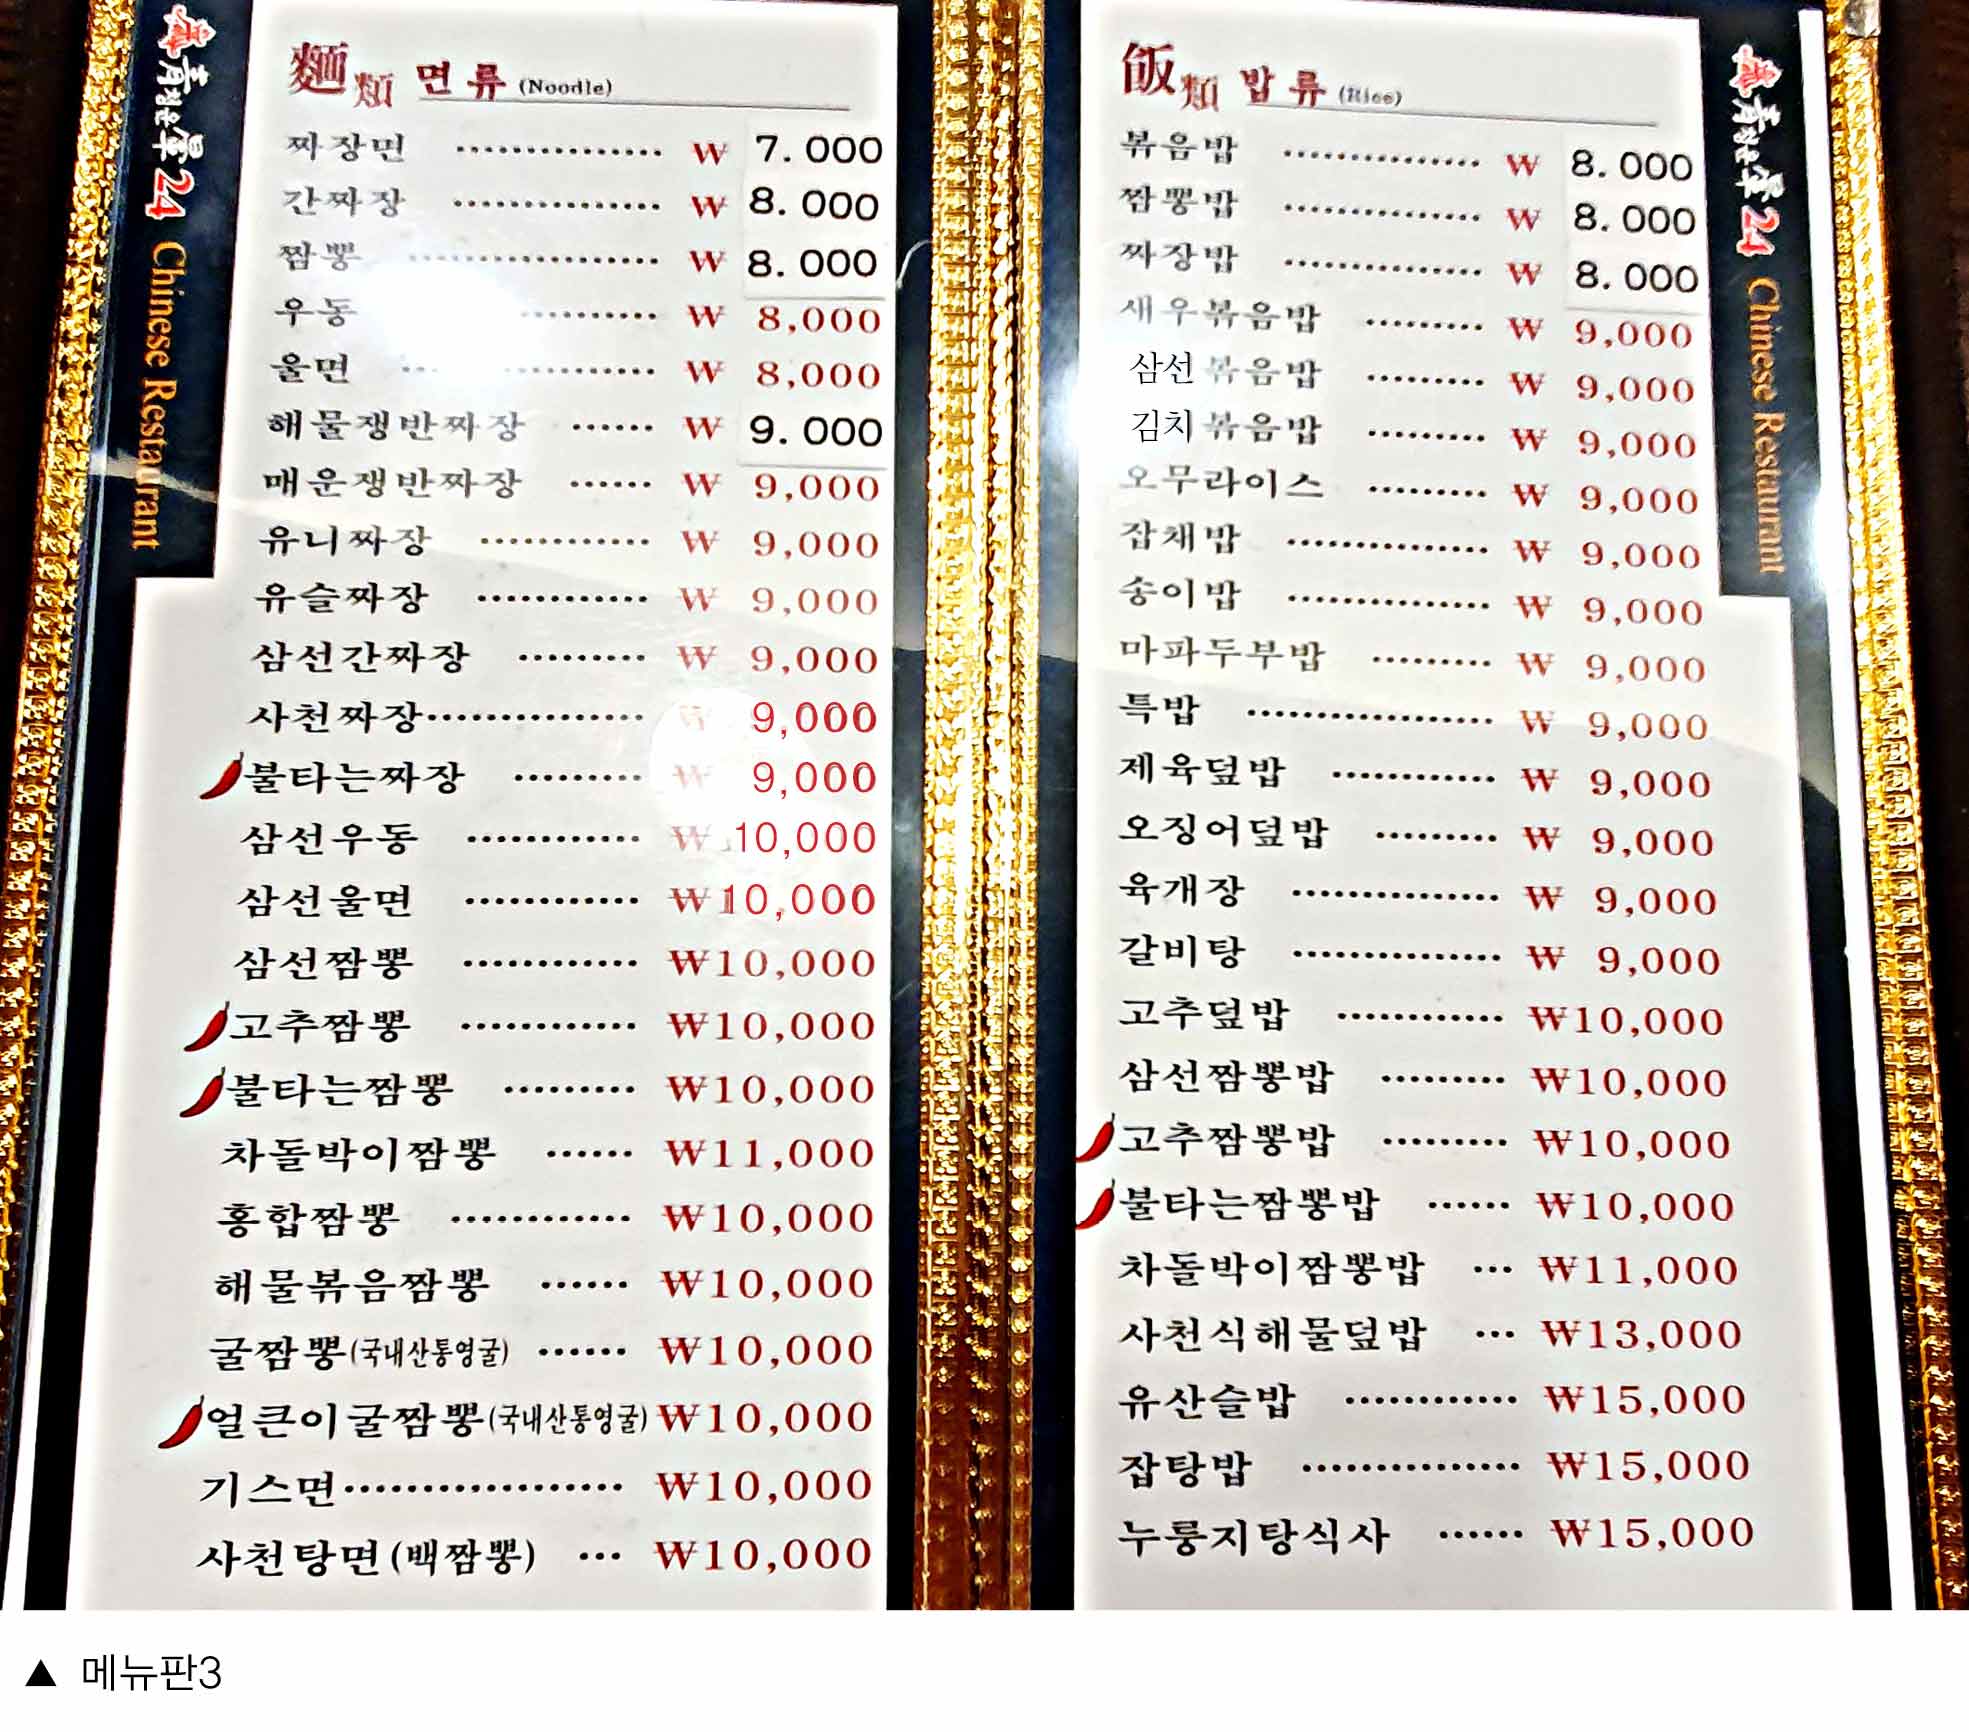 麵類 면류 (Noodle)
짜장면 ················ ₩ 7.000
간짜장 ················ ₩ 8.000
짬뽕 ··················· ₩ 8.000
우동 ·········· ₩ 8,000
울면 ·· ············ ₩ 8,000
해물쟁반짜장 ······ ₩ 9.000
매운쟁반짜장 ······ ₩ 9,000
유니짜장 ············ ₩ 9,000
유슬짜장 ············ ₩ 9,000
삼선간짜장 ········· ₩ 9,000
사천짜장················ ₩ 9,000
불타는짜장 ········· ₩ 9,000
삼선우동 ············ ₩ 10,000
삼선울면 ············ ₩10,000
삼선짬뽕 ············ ₩10,000
고추짬뽕 ············ ₩10,000
불타는짬뽕 ········· ₩10,000
차돌박이짬뽕 ······ ₩11,000
홍합짬뽕 ············ ₩10,000
해물볶음짬뽕 ······ ₩10,000
굴짬뽕(국내산통영굴) ······ ₩10,000
얼큰이굴짬뽕(국내산통영굴) ₩10,000
기스면··················· ₩10,000
사천탕면(백짬뽕) ··· ₩10,000
飯類 밥류 (Rice)
볶음밥 ··············· ₩ 8.000
짬뽕밥 ··············· ₩ 8.000
짜장밥 ··············· ₩ 8.000
새우볶음밥 ········· ₩ 9,000
삼선볶음밥 ········· ₩ 9,000
김치볶음밥 ········· ₩ 9,000
오무라이스 ········· ₩ 9,000
잡채밥 ··············· ₩ 9,000
송이밥 ··············· ₩ 9,000
마파두부밥 ········· ₩ 9,000
특밥 ··················· ₩ 9,000
제육덮밥 ············ ₩ 9,000
오징어덮밥 ········· ₩ 9,000
육개장 ················ ₩ 9,000
갈비탕 ················ ₩ 9,000
고추덮밥 ············ ₩10,000
삼선짬뽕밥 ········· ₩10,000
고추짬뽕밥 ········· ₩10,000
불타는짬뽕밥 ······ ₩10,000
차돌박이짬뽕밥 ··· ₩11,000
사천식해물덮밥 ··· ₩13,000
유산슬밥 ············ ₩15,000
잡탕밥 ··············· ₩15,000
누룽지탕식사 ······ ₩15,000
24 Chinese Restaurant
24 Chinese Restaurant
▲ 메뉴판3